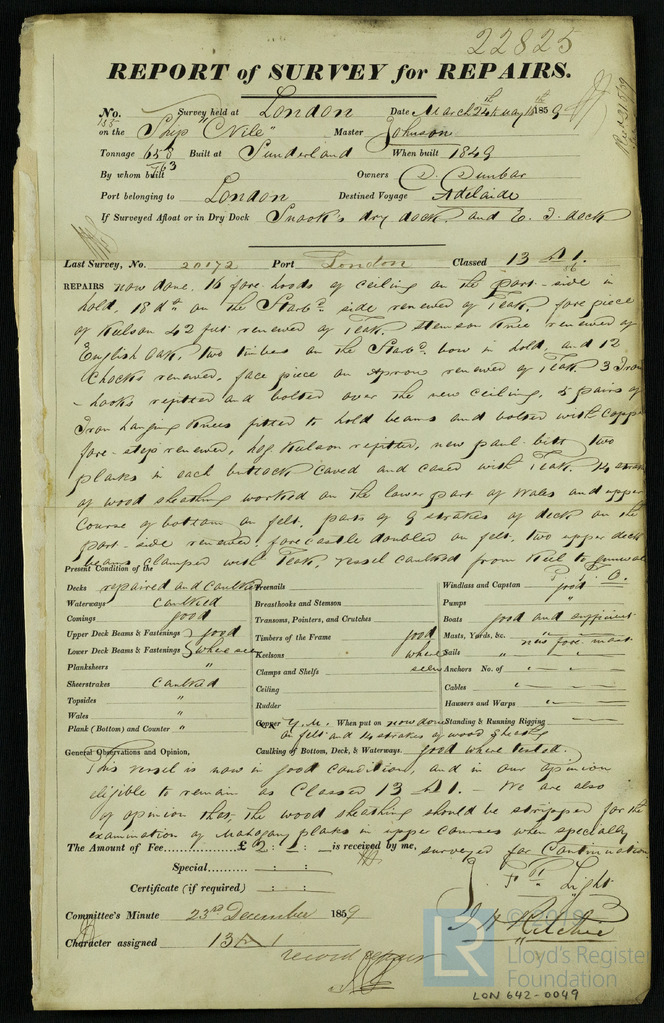 22825
REPORT of SURVEY for REPAIRS.
No. 155 Survey held at London Date March 24th May 1859
on the Ship "Nile" Master Johnson
Tonnage 658 Built at Sunderland When built 1849
763
By whom built Owners D. Dunbar
Port belonging to London Destined Voyage Adelaide
If Surveyed Afloat or in Dry Dock Snook's dry dock and E. I. dock
Last Survey, No. 20172 Port London Classed 13 A 1.
REPAIRS now done. 16 fore hoods of ceiling on the port side in
hold, 18 do on the Starbd. side renewed of Teak, fore piece
of Keelson 42 feet renewed of Teak. Stemson Knee renewed of
English Oak, two timbers on the Starbd. bow in hold, and 12
Chocks renewed, face piece on Apron renewed of Teak 3 Iron
hooks refitted and bolted over the new ceiling, 5 pairs of
Iron hanging Knees fitted to hold beams and bolted with Copper
fore-step renewed, hog Keelson refitted, new paul-bitt two
planks in each buttock caved and cased with Teak. 14 strakes
of wood sheathing worked on the lower part of Wales and upper
Course of bottom on felt. parts of 9 strakes of deck on the
port-side renewed, forecastle doubled on felt. two upper deck
beams clamped with Teak, vessel caulked from Keel to gunwale
P. T. O.
Present Condition of the
Decks repaired and caulked Treenails Windlass and Capstan good
Waterways caulked Breasthooks and Stemson Pumps "
Comings good Transoms, Pointers, and Crutches Boats good and sufficient
Upper Deck Beams & Fastenings good Timbers of the Frame good Masts, Yards, &c. " new fore mast
Lower Deck Beams & Fastenings where seen Keelsons where Sails "
Planksheers " Clamps and Shelfs seen Anchors No. of "
Sheerstrakes caulked Ceiling Cables "
Topsides " Rudder Hausers and Warps "
Wales " Copper Y.M. When put on now done Standing & Running Rigging "
Plank (Bottom) and Counter " on felt and 14 strakes of wood sheathg
General Observations and Opinion, Caulking of Bottom, Deck, & Waterways good where tested.
This vessel is now in good condition, and in our opinion
eligible to remain as Classed 13 A 1. We are also
of opinion that the wood sheathing should be stripped for the
examination of Mahogany planks in upper courses when specially
surveyed for Continuation
The Amount of Fee £ 2 : 1 : is received by me,
Special : :
Certificate (if required) : :
Light
Committee's Minute 23rd December 1859
J. H. Ritchie
Character assigned 13 A 1
record repairs
© 2019
LR
Lloyd's Register
Foundation
LON 642-0049